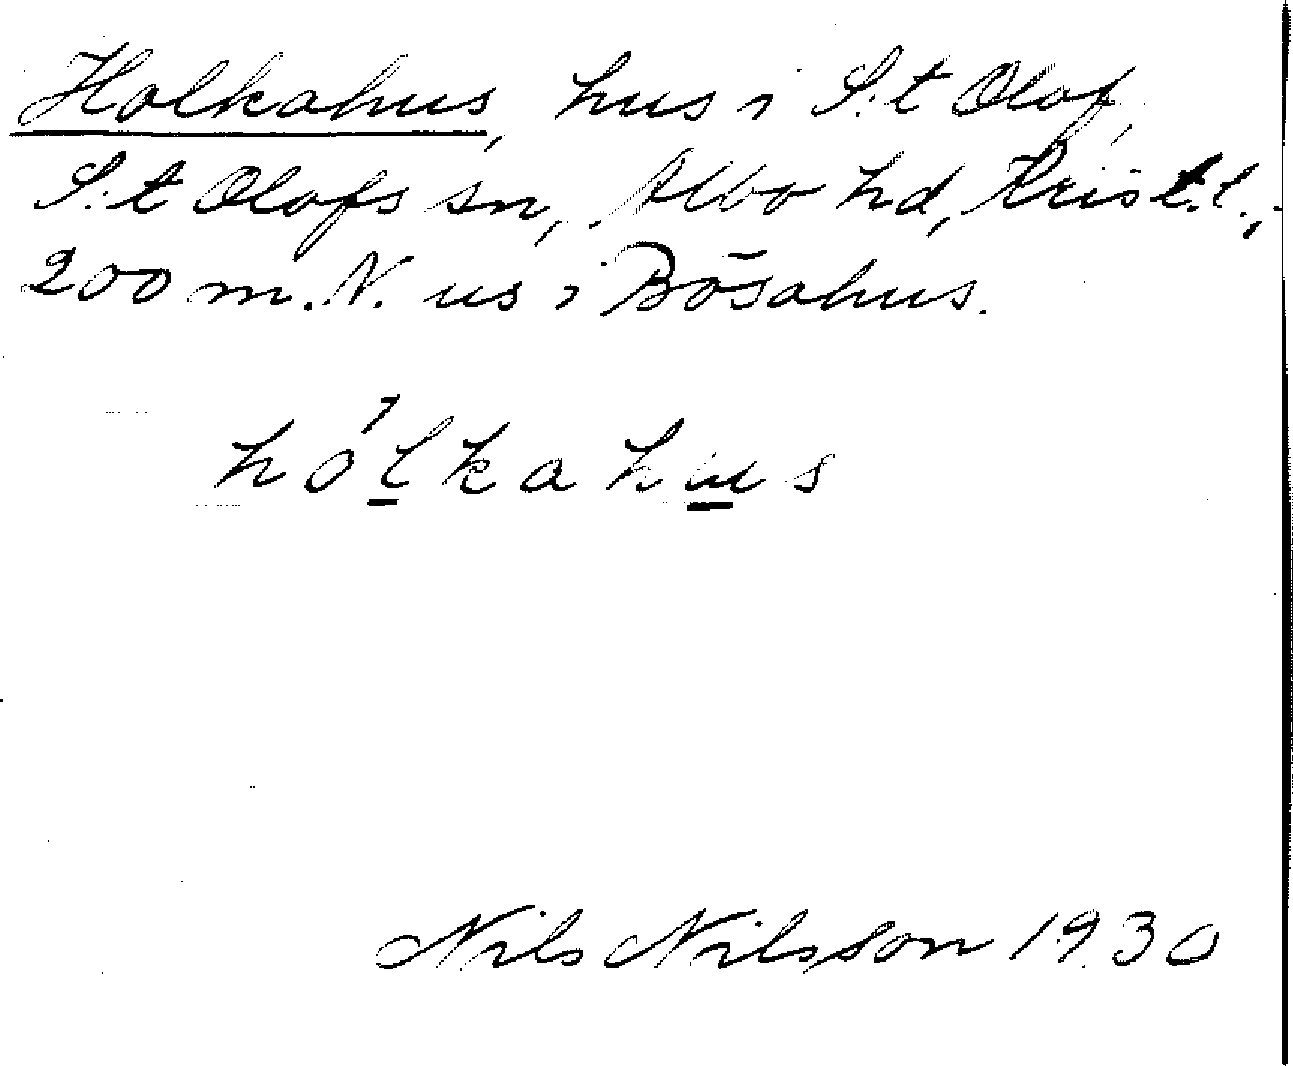 Holkahus, hus i S:t Olof,
S:t Olofs sn, Albo hd, Krist. l.,
200 m. N. us i Bōsahus.
hólkahus
Nils Nilsson 1930